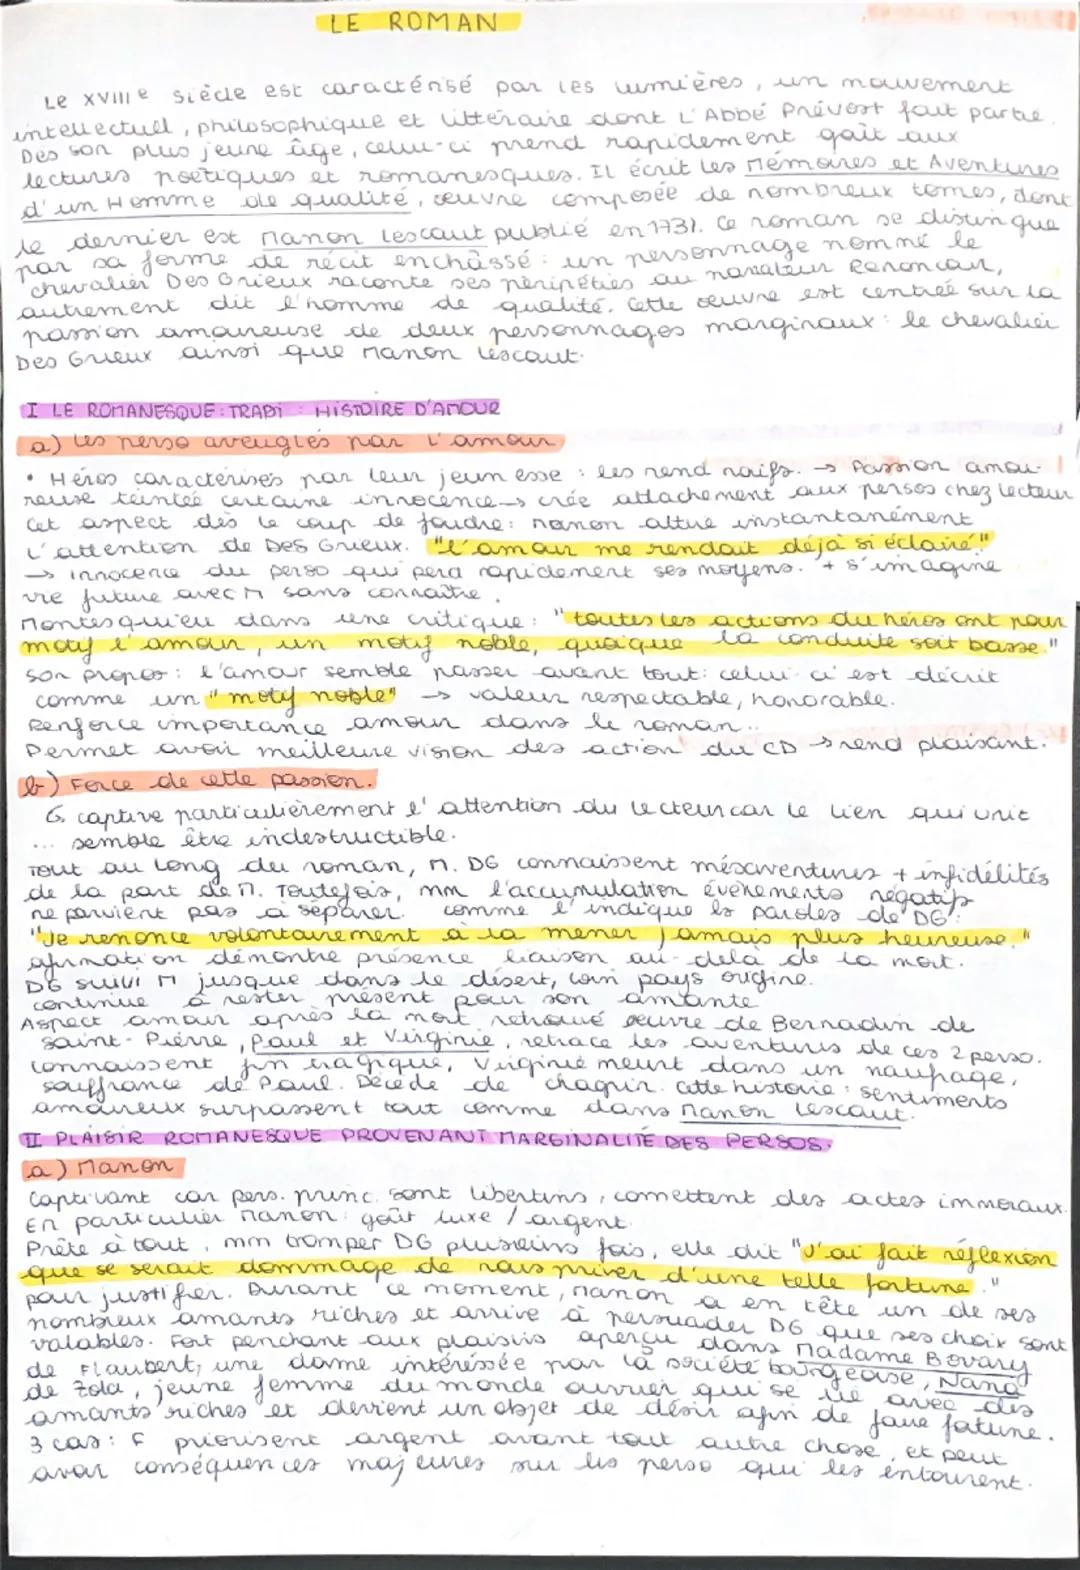 LE ROMAN
Le XVIIIe siècle est caractérisé par les lumières, un mouvement
intellectuel, philosophique et littéraire dont L'Abbé Prévost fait partie.
Dès son plus jeune âge, celui-ci prend rapidement goût aux
lectures poétiques et romanesques. Il écrit les Mémoires et Aventures
d'un Homme de qualité, œuvre composée de nombreux tomes, dont
le dernier est Manon Lescaut publié en 1731. Ce roman se distingue
par sa forme de récit enchâssé : un personnage nommé le
chevalier Des Grieux raconte ses péripéties au narrateur Renoncour,
autrement dit l'homme de qualité. Cette œuvre est centrée sur la
passion amoureuse de deux personnages marginaux : le chevalier
Des Grieux ainsi que Manon Lescaut.
I LE ROMANESQUE : TRADI : HISTOIRE D'AMOUR
a) Les perso aveuglés par l'amour
• Héros caractérisés par leur jeunesse : les rend naifs. → Passion amou-
reuse teintée certaine innocence → crée attachement aux persos chez lecteur
Cet aspect dès le coup de foudre : Manon attire instantanément
l'attention de Des Grieux. "L'amour me rendait déjà si éclairé"
→ innocence du perso qui perd rapidement ses moyens. + s'imagine
vie future avec M sans connaître.
Montesquieu dans une critique : "toutes les actions du héros ont pour
motif l'amour, un motif noble, quoique la conduite soit basse."
Son propos : l'amour semble passer avant tout : celui-ci est décrit
comme un "motif noble" → valeur respectable, honorable.
Renforce importance amour dans le roman..
Permet avoir meilleure vision des action du CD → rend plaisant.
b) Force de cette passion.
↳ captive particulièrement l'attention du lecteur car le lien qui unit
... semble être indestructible.
Tout au long du roman, M. DG connaissent mésaventures + infidélités
de la part de M. Toutefois, mm l'accumulation événements négatifs
ne parvient pas à séparer. comme l'indique ls paroles de DG :
"Je renonce volontairement à la mener jamais plus heureuse."
afirmation démontre présence liaison au-delà de la mort.
DG suivi M jusque dans le désert, loin pays origine.
continue à rester présent pour son amante
Aspect amour après la mort retrouvé œuvre de Bernadin de
Saint-Pierre, Paul et Virginie, retrace les aventures de ces 2 perso.
connaissent fin tragique, Virginie meurt dans un naufrage,
souffrance de Paul. Décède de chagrin. Cette histoire : sentiments
amoureux surpassent tout comme dans Manon Lescaut.
II PLAISIR ROMANESQUE PROVENANT MARGINALITÉ DES PERSOS.
a) Manon
Captivant car pers. princ. sont libertins, comettent des actes immoraux.
En particulier Manon : goût luxe / argent.
Prête à tout, mm tromper DG plusieurs fois, elle dit "J'ai fait réflexion
que se serait dommage de nous priver d'une telle fortune."
pour justifier. Durant ce moment, Manon a en tête un de ses
nombreux amants riches et arrive à persuader DG que ses choix sont
valables. Fort penchant aux plaisirs aperçu dans Madame Bovary
de Flaubert, une dame intéressée par la société bourgeoise, Nana
de Zola, jeune femme du monde ouvrier qui se lie avec des
amants riches et devient un objet de désir afin de faire fortune.
3 cas : F priorisent argent avant tout autre chose, et peut
avoir conséquences majeures sur les perso qui les entourent.